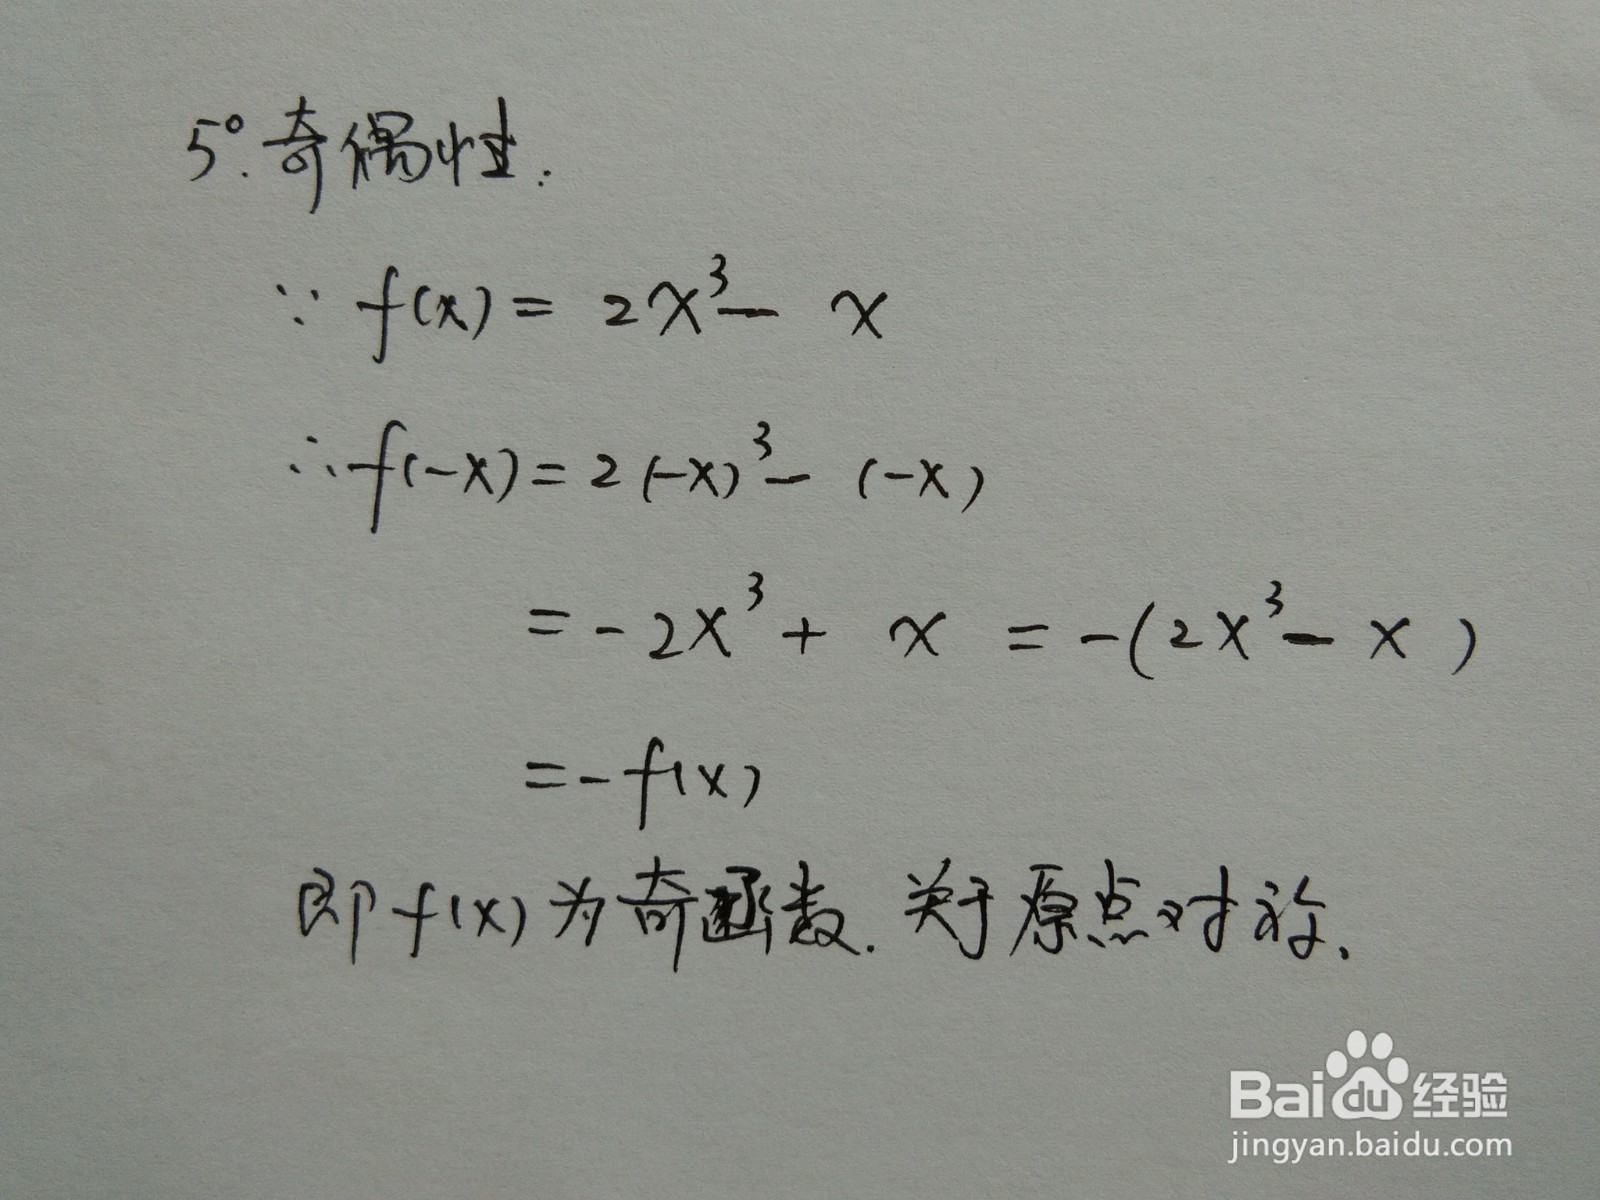 5°.奇偶性.
∵ f(x) = 2x³ - x
∴ f(-x) = 2(-x)³ - (-x)
= -2x³ + x = -(2x³ - x)
= -f(x)
即f(x)为奇函数.关于原点对称.
Baidu经验
jingyan.baidu.com